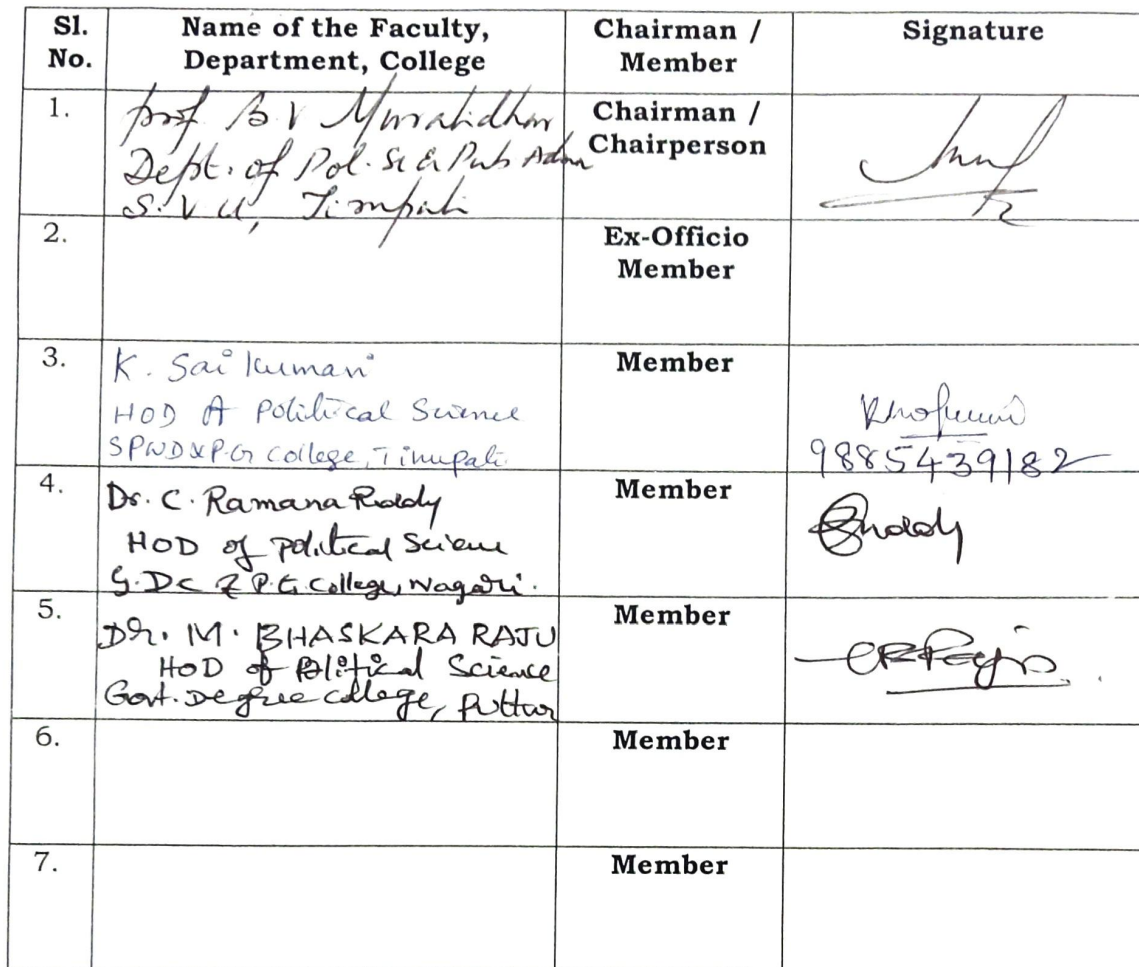 Sl. No.
Name of the Faculty, Department, College
Chairman / Member
Signature
1.
Prof B V Muralidhar
Dept. of Pol. Sc & Pub Admn
S.V.U, Tirupati
Chairman / Chairperson
2.
Ex-Officio Member
3.
K. Sai Kumari
HOD of Political Science
SPWD & P.G College, Tirupati
Member
9885439182
4.
Dr. C. Ramana Reddy
HOD of Political Science
G.DC & P.G. College, Nagari.
Member
5.
Dr. M. BHASKARA RAJU
HOD of Political Science
Govt. Degree college, Puttur
Member
6.
Member
7.
Member